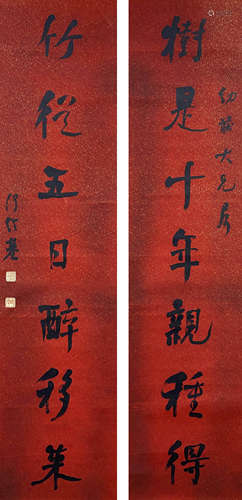 樹是十年親種得
大兄
竹從五日醉移來
何紹基